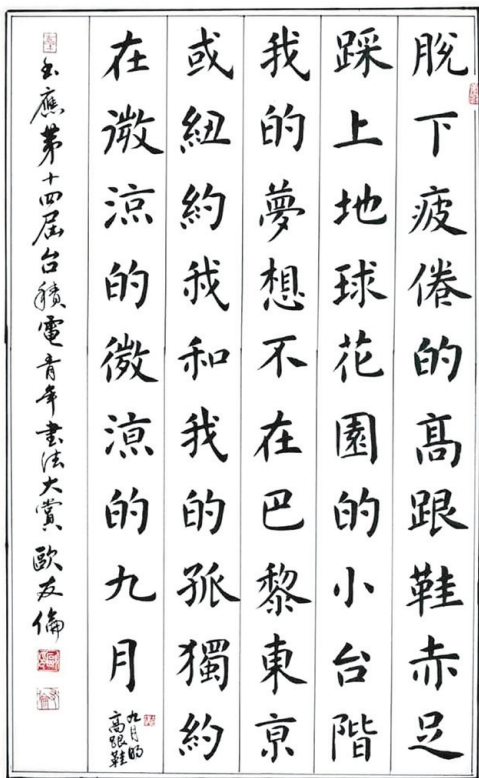 脫下疲倦的高跟鞋赤足
踩上地球花園的小台階
我的夢想不在巴黎東京
或紐約我和我的孤獨約
在微涼的微涼的九月
九月的
高跟鞋
書應第十四屆台積電青年書法大賞 歐友倫